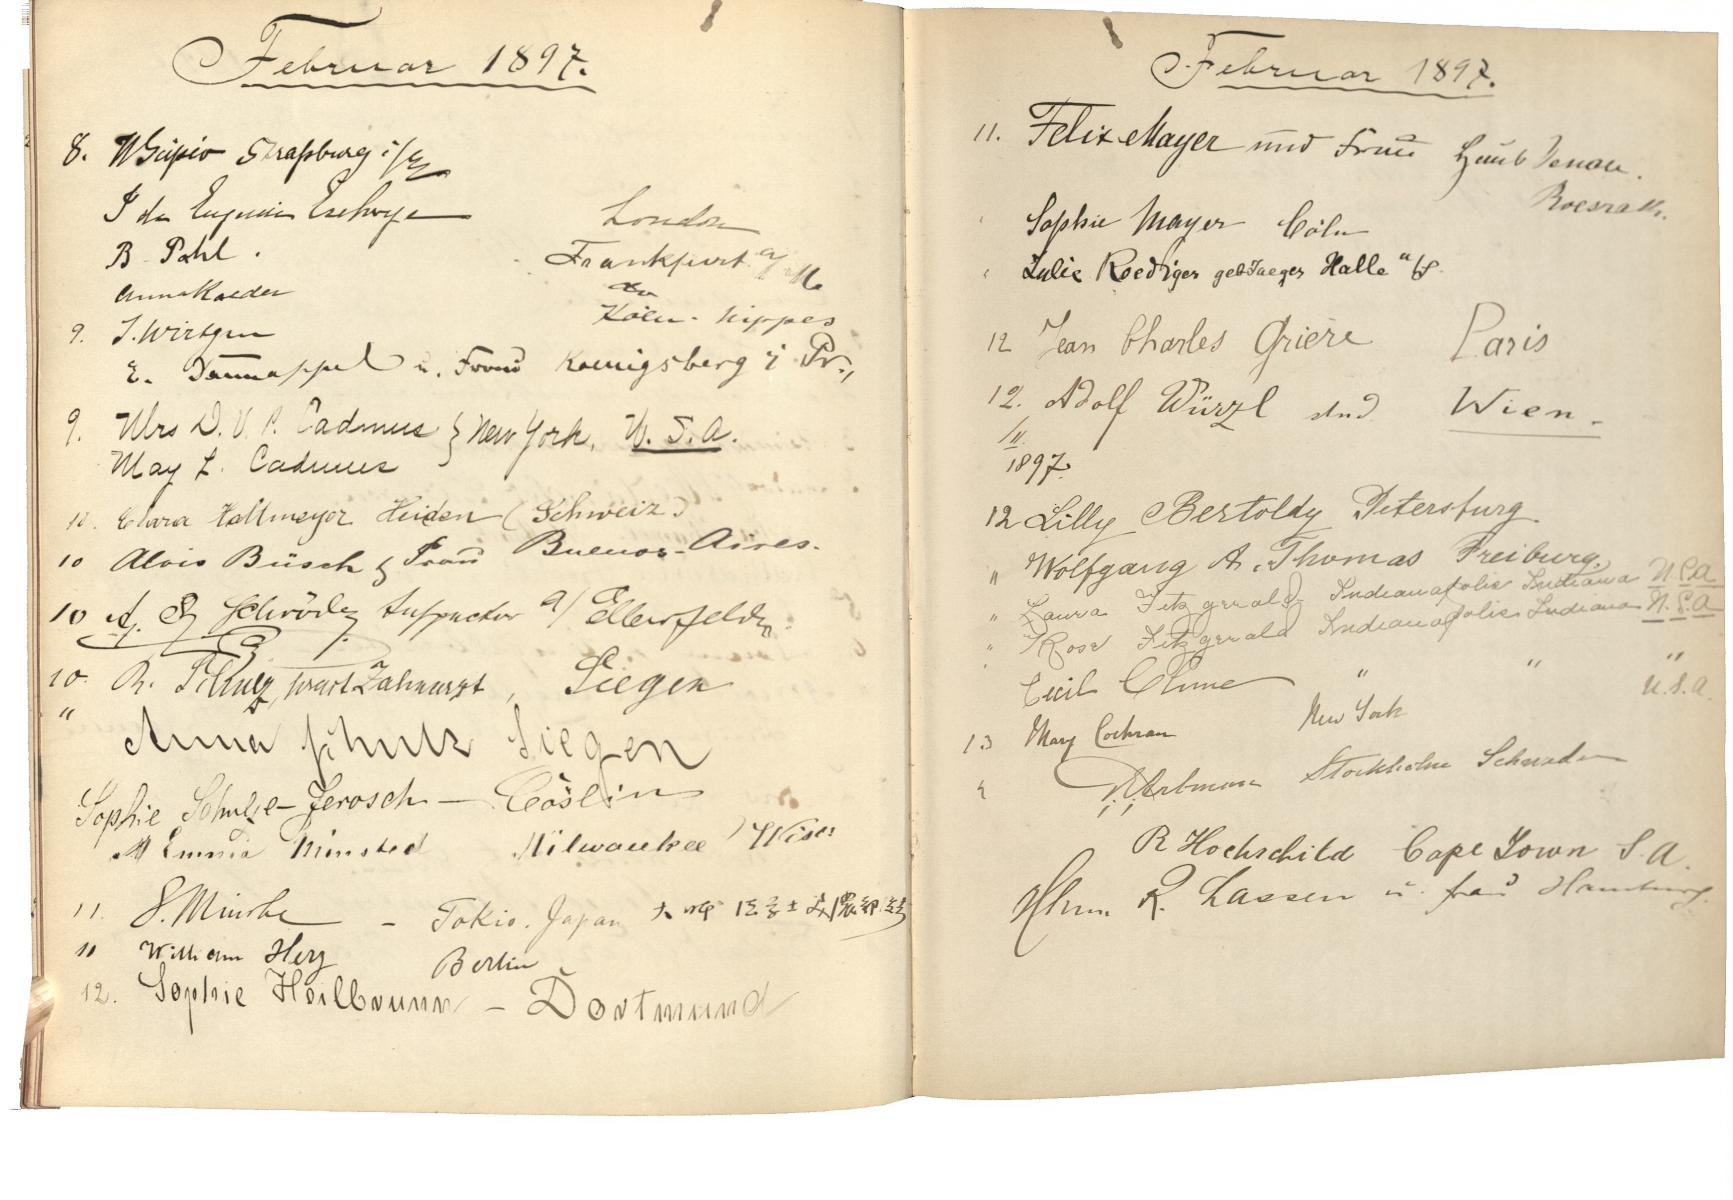 Februar 1897.
8. WScipio Straßburg i/E
London
B. Pahl. Frankfurt a/M
Anna Kaeder do
9. J. Wirtgen Köln-Nippes
E. Tannappel u. Frau Koenigsberg i Pr.,
9. Mrs D. V. P. Cadmus } New York, U.S.A.
May L. Cadmus
10. Clara Haltmeyer Heiden (Schweiz)
10 Alois Büsch & Frau Buenos-Aires.
10 Schröder Inspector a/
10. R. Schulz, pract Zahnarzt, Siegen
" Anna Schulz Siegen
Sophie Schulze-Jerosch — Cöslin
Emma Milwaukee Wisc
11. - Tokio. Japan
11 William Herz Berlin
12. Sophie Heilbrunn — Dortmund
Februar 1897.
11. Felix Mayer und Frau Haus Venau.
Roesrath.
Sophie Mayer Cöln
Julie Roediger geb Jaeger Halle a/S.
12 Jean Charles Grière Paris
12. Adolf Würzl stud Wien.
/II.
1897.
12 Lilly Bertoldy Petersburg.
" Wolfgang A. Thomas Freiburg.
" Laura Fitzgerald Indianapolis Indiana U.S.A
" Rose Fitzgerald Indianapolis Indiana U.S.A
Cecil " " "
13 Mary Cochran New York U.S.A.
Stockholm Schweden
R Hochschild Cape Town S.A.
R. Lassen u. frau Hamburg.